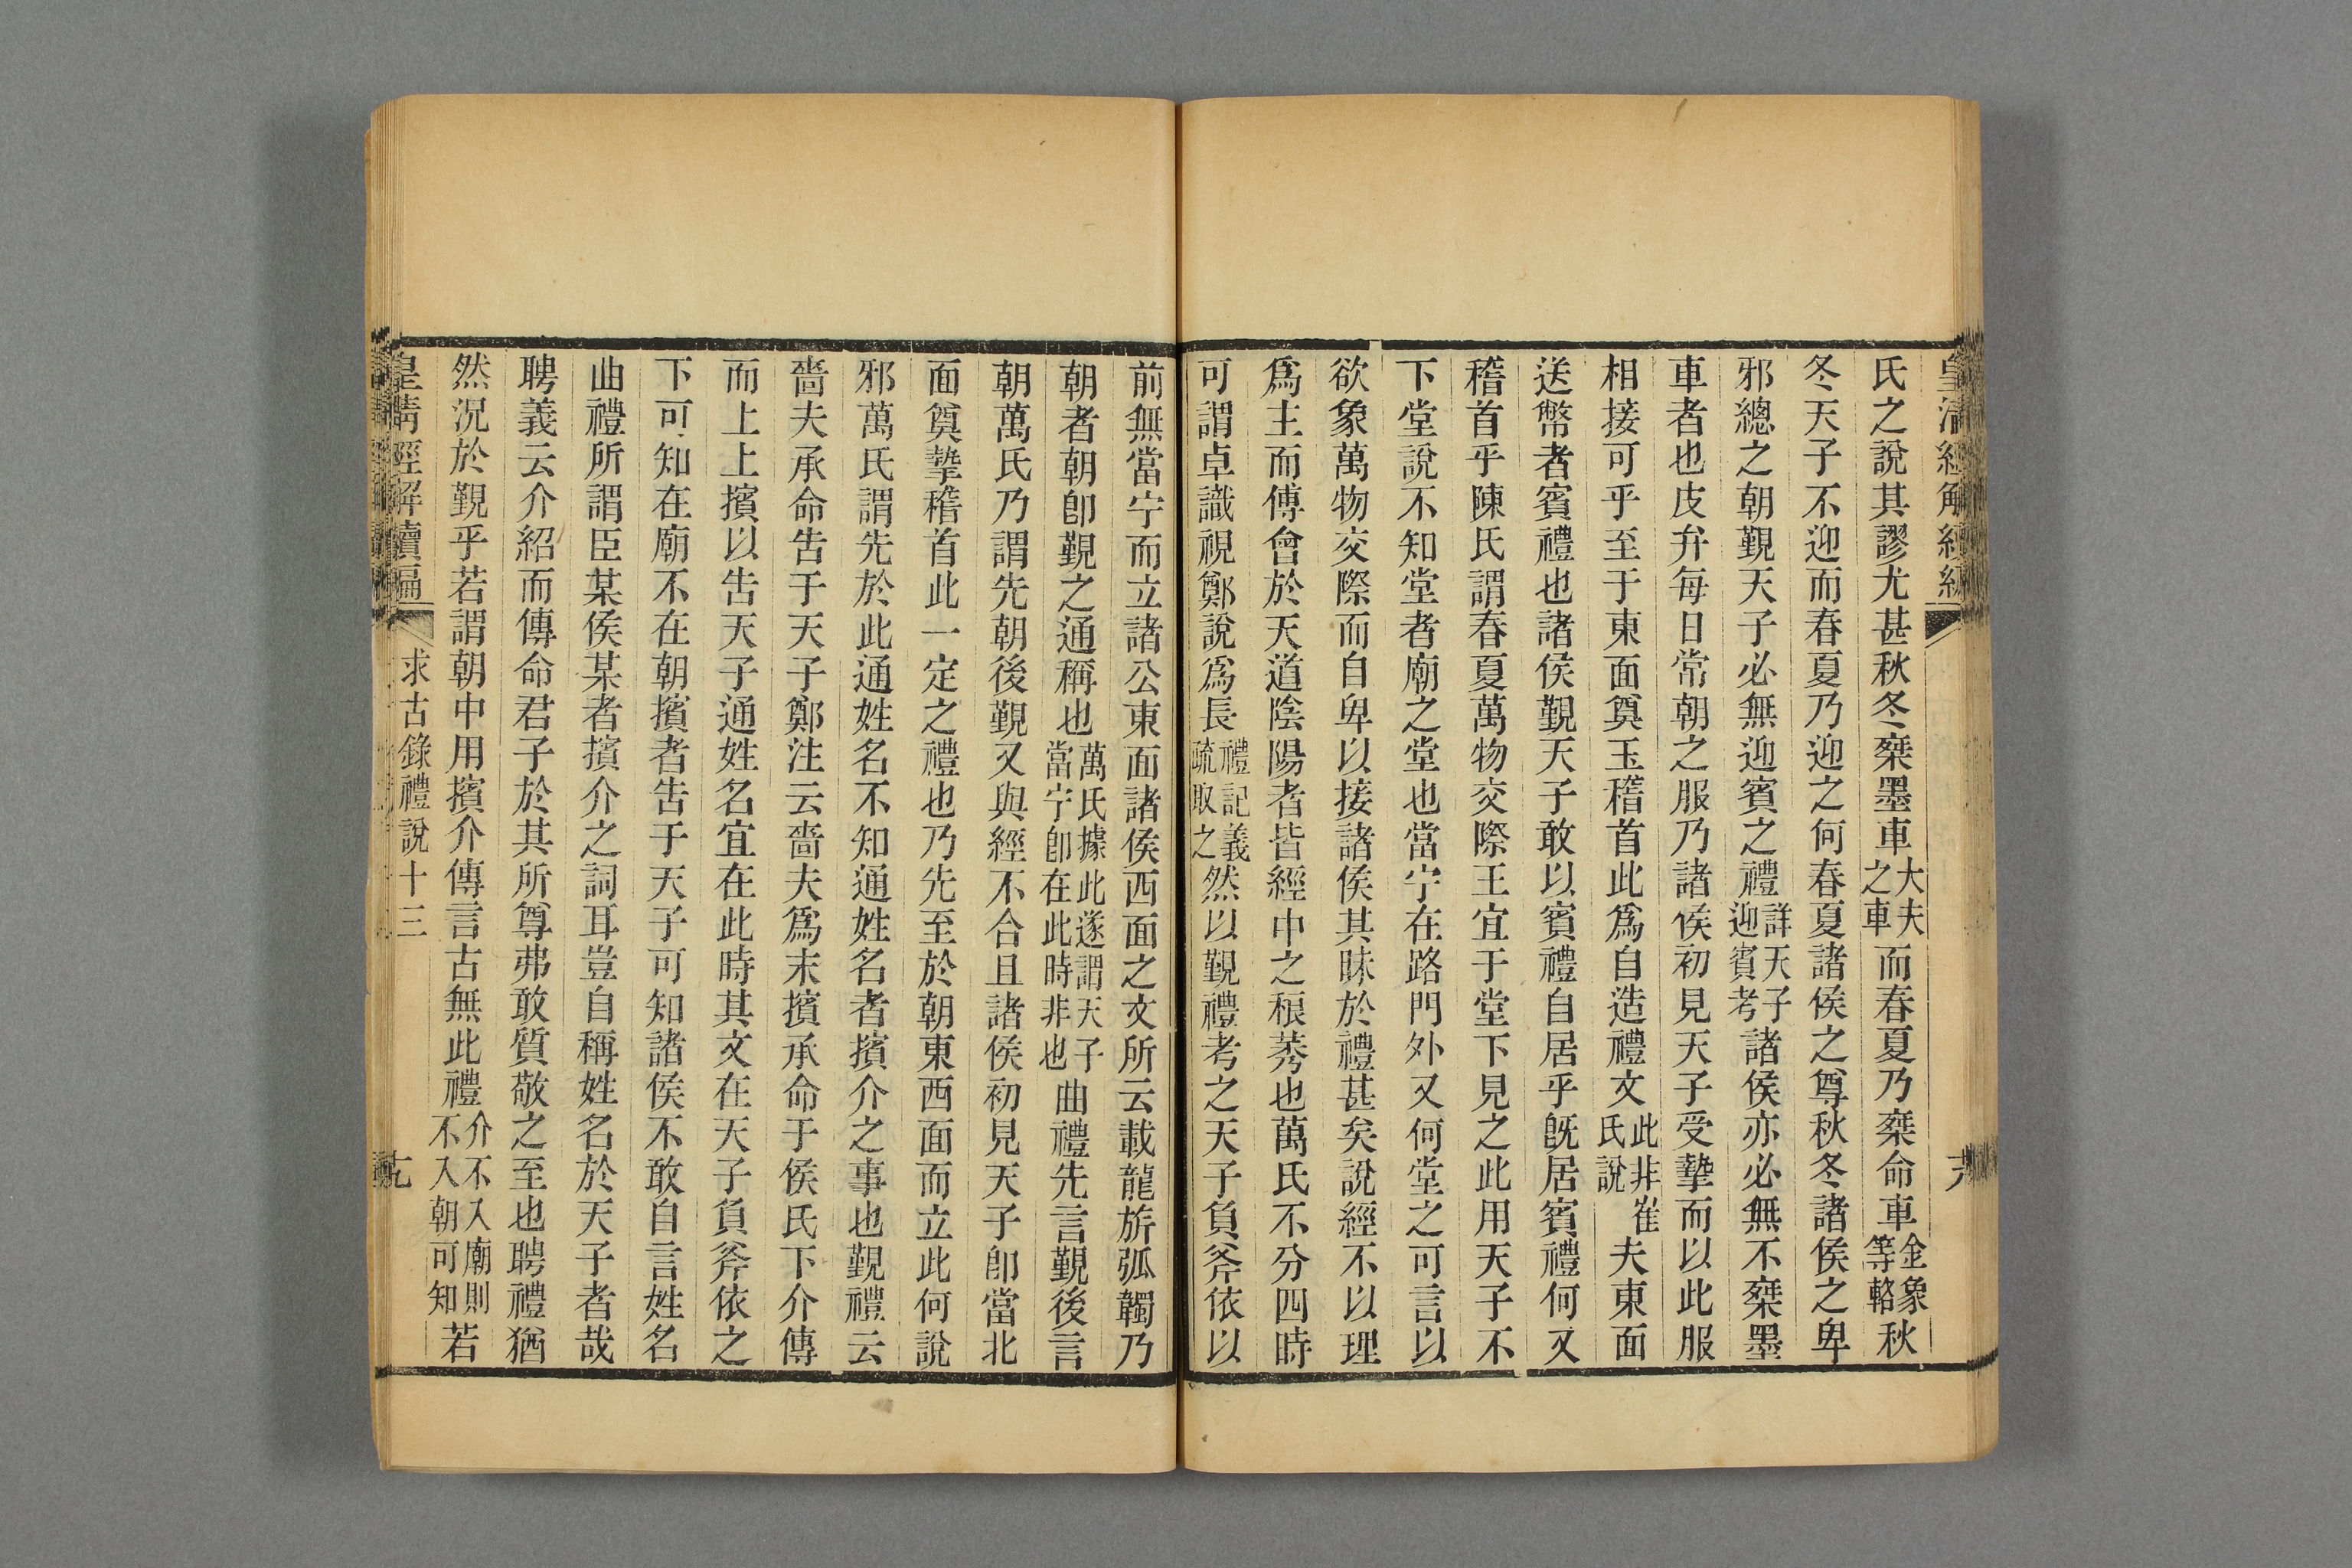 氏之說其謬尤甚秋冬椉墨車大夫之車而春夏乃椉命車金象等輅秋
冬天子不迎而春夏乃迎之何春夏諸侯之尊秋冬諸侯之卑
邪總之朝覲天子必無迎賓之禮詳天子迎賓考諸侯亦必無不椉墨
車者也皮弁每日常朝之服乃諸侯初見天子受摯而以此服
相接可乎至于東面奠玉稽首此爲自造禮文此非崔氏說夫東面
送幣者賓禮也諸侯覲天子敢以賓禮自居乎旣居賓禮何又
稽首乎陳氏謂春夏萬物交際王宜于堂下見之此用天子不
下堂說不知堂者廟之堂也當宁在路門外又何堂之可言以
欲象萬物交際而自卑以接諸侯其昧於禮甚矣說經不以理
爲主而傅會於天道陰陽者皆經中之稂莠也萬氏不分四時
可謂卓識視鄭說爲長禮記義疏取之然以覲禮考之天子負斧依以
前無當宁而立諸公東面諸侯西面之文所云載龍旂弧韣乃
朝者朝卽覲之通稱也萬氏據此遂謂天子當宁卽在此時非也曲禮先言覲後言
朝萬氏乃謂先朝後覲又與經不合且諸侯初見天子卽當北
面奠摯稽首此一定之禮也乃先至於朝東西面而立此何說
邪萬氏謂先於此通姓名不知通姓名者擯介之事也覲禮云
嗇夫承命告于天子鄭注云嗇夫爲末擯承命于侯氏下介傳
而上上擯以告天子通姓名宜在此時其文在天子負斧依之
下可知在廟不在朝擯者告于天子可知諸侯不敢自言姓名
曲禮所謂臣某侯某者擯介之詞耳豈自稱姓名於天子者哉
聘義云介紹而傳命君子於其所尊弗敢質敬之至也聘禮猶
然況於覲乎若謂朝中用擯介傳言古無此禮介不入廟則不入朝可知若
皇清經解續編
求古錄禮說十三